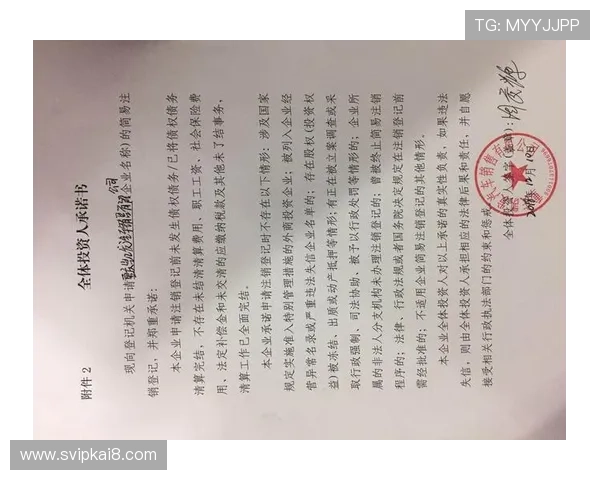 TG: MYYJJPP
附件 2
全体投资人承诺书
现向登记机关申请 公司(企业名称)的简易注
销登记,并郑重承诺:
本企业申请注销登记前未发生债权债务/已将债权债务
清算完结,不存在未结清清算费用、职工工资、社会保险费
用、法定补偿金和未交清的应缴纳税款及其他未了结事务,
清算工作已全面完结。
本企业承诺申请注销登记时不存在以下情形:涉及国家
规定实施准入特别管理措施的外商投资企业;被列入企业经
营异常名录或严重违法失信企业名单的;存在股权(投资权
益)被冻结、出质或动产抵押等情形;有正在被立案调查或采
取行政强制、司法协助、被予以行政处罚等情形的;企业所
属的非法人分支机构未办理注销登记的;曾被终止简易注销
程序的;法律、行政法规或者国务院决定规定在注销登记前
需经批准的;不适用企业简易注销登记的其他情形。
本企业全体投资人对以上承诺的真实性负责,如果违法
失信,则由全体投资人承担相应的法律后果和责任,并自愿
接受相关行政执法部门的约束和惩戒。
全体投资人签字(盖章):
www.svipkai8.com